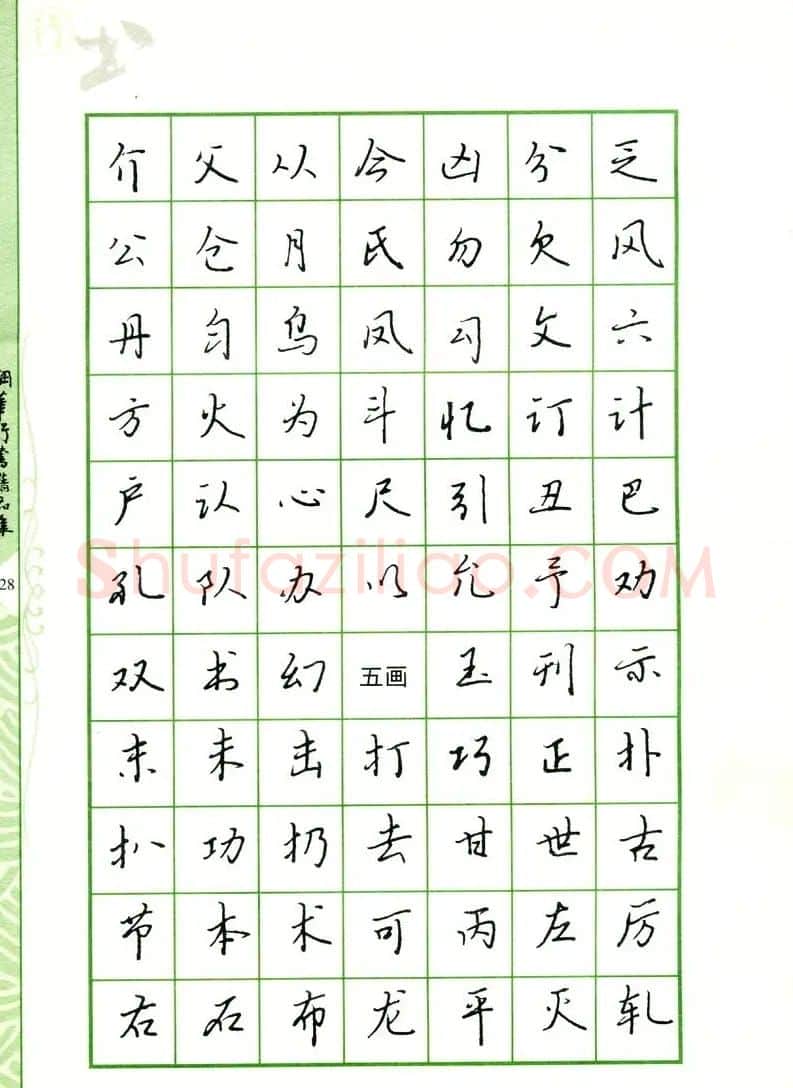 介 父 从 今 凶 分 乏
公 仓 月 氏 勿 欠 风
丹 匀 乌 凤 勾 文 六
方 火 为 斗 忆 订 计
户 认 心 尺 引 丑 巴
孔 队 办 以 允 予 劝
双 书 幻 五画 玉 刊 示
末 未 击 打 巧 正 扑
扒 功 扔 去 甘 世 古
节 本 术 可 丙 左 厉
右 石 布 龙 平 灭 轧
28
Shufaziliao.COM